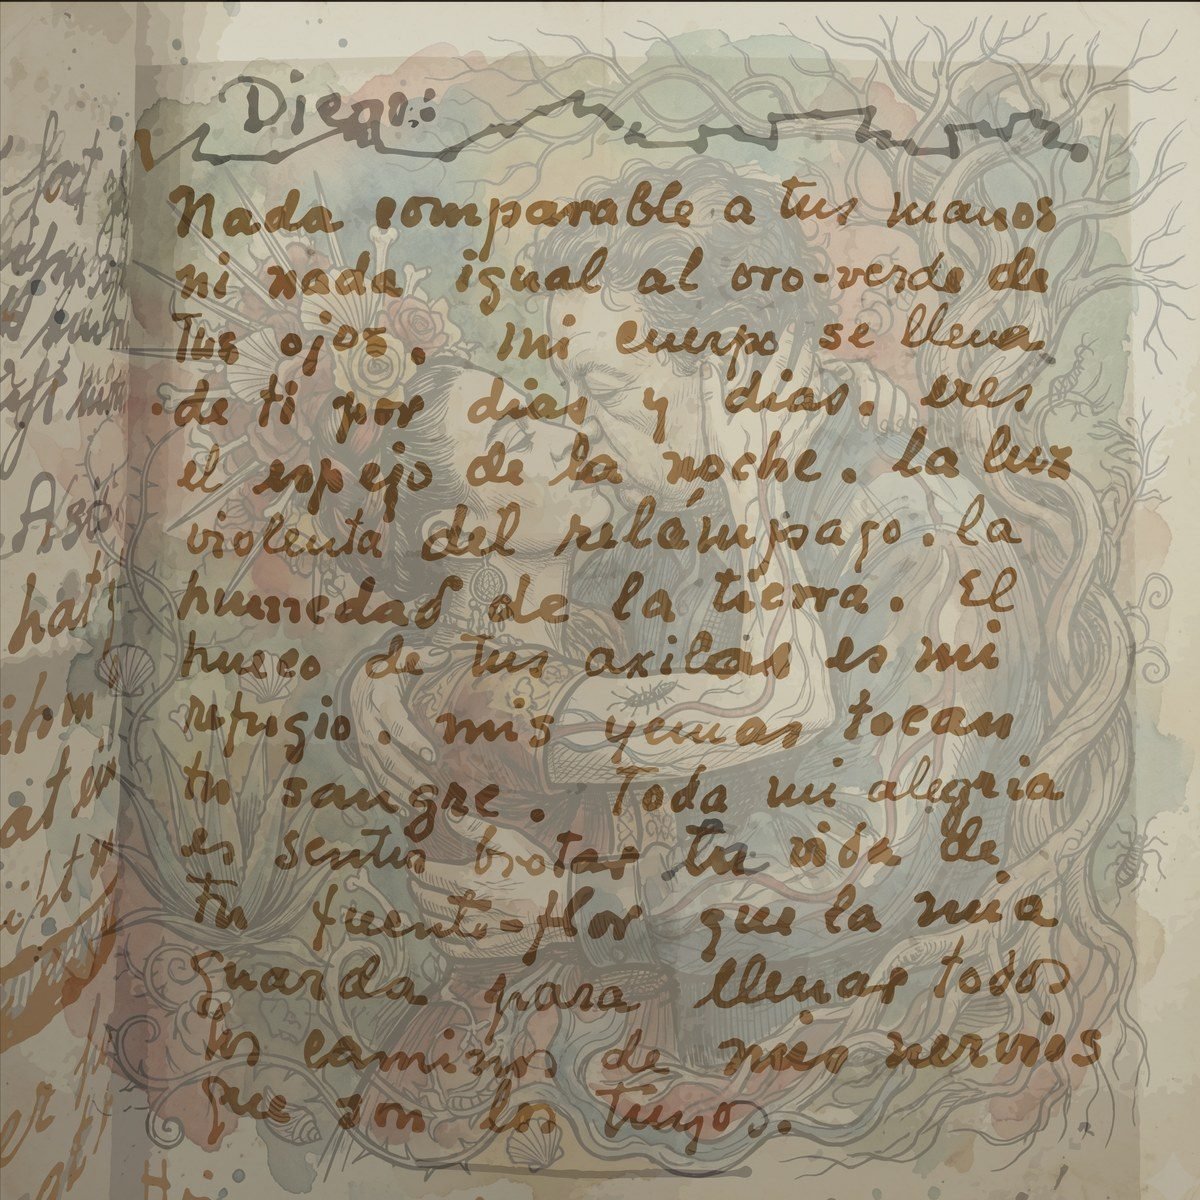 Diego:
Nada comparable a tus manos
ni nada igual al oro-verde de
tus ojos. mi cuerpo se llena
de ti por dias y dias. eres
el espejo de la noche. la luz
violenta del relámpago. la
humedad de la tierra. El
hueco de tus axilas es mi
refugio. mis yemas tocan
tu sangre. Toda mi alegria
es sentir brotar tu vida de
tu fuente-flor que la mia
guarda para llenar todos
los caminos de mis nervios
que son los tuyos.